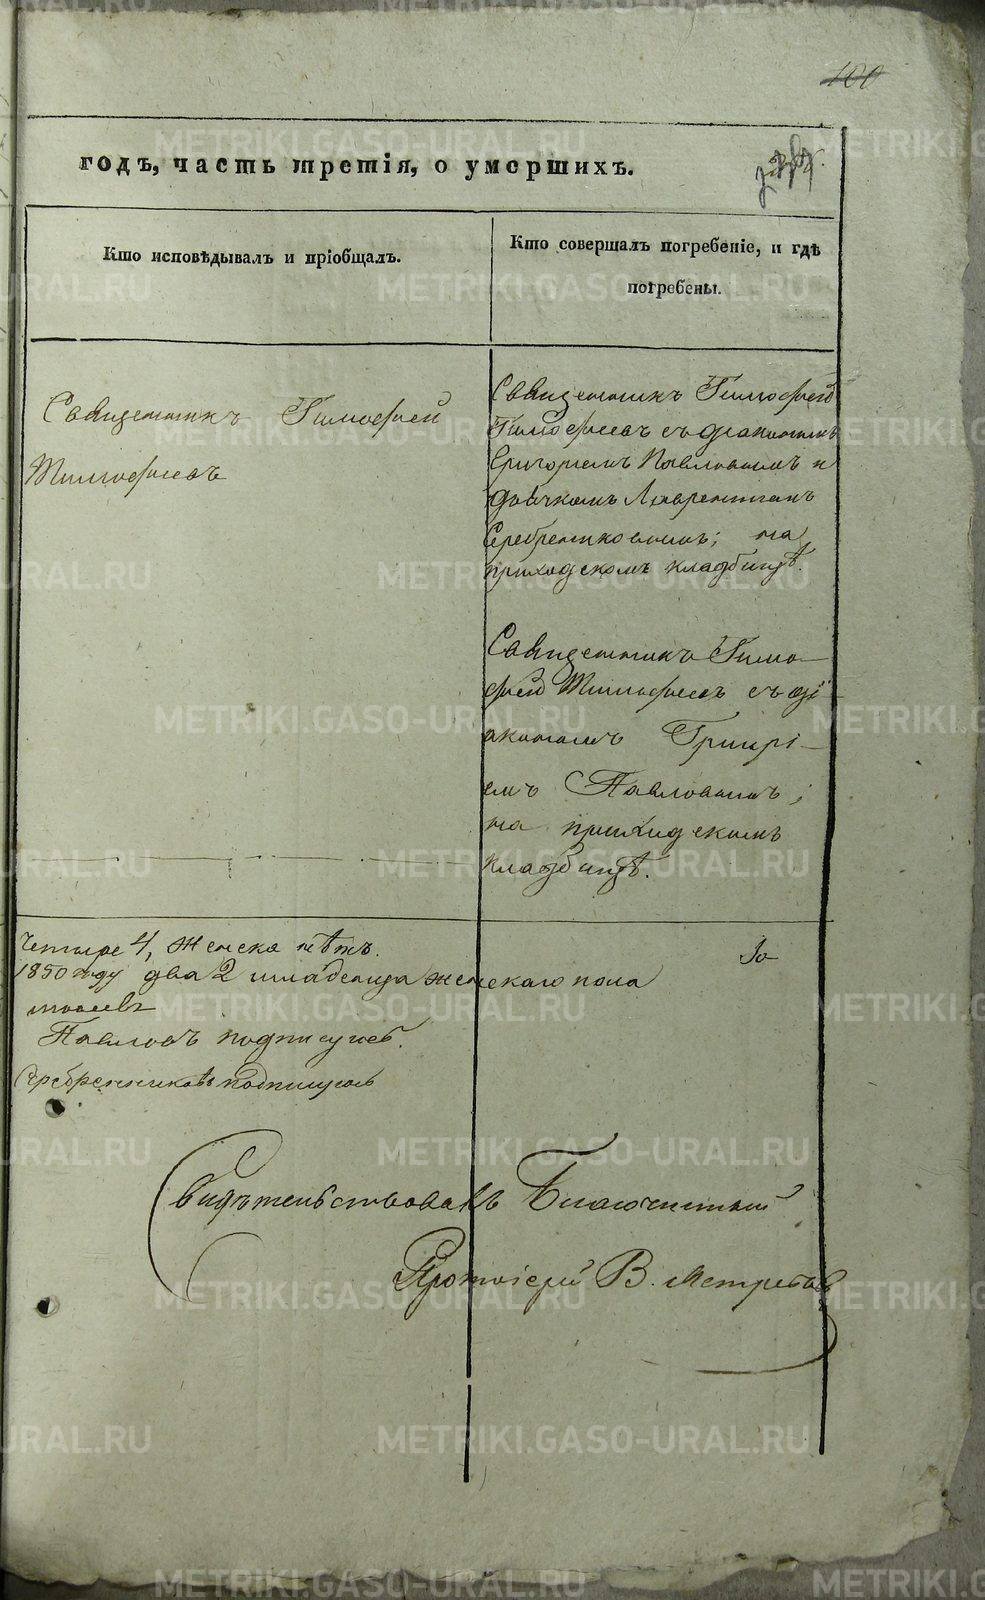 100
годъ, часть третія, о умершихъ.
Кто исповѣдывалъ и пріобщалъ.
Кто совершалъ погребеніе, и гдѣ
погребены.
Священникъ Тимофей
Тимофеевъ
Священникъ Тимофей
Тимофеевъ съ діакономъ
Григоріемъ Павловымъ и
дьячкомъ Лаврентіемъ
Серебренниковымъ; на
приходскомъ кладбищѣ.
Священникъ Тимо-
фей Тимофеевъ съ ді-
акономъ Григорі-
емъ Павловымъ;
на приходскомъ
кладбищѣ.
Четыре 4, женска нѣтъ.
1850 году два 2 младенца женскаго пола
Павловъ подписуюсь.
Серебренниковъ подписуюсь
Свидѣтельствовалъ Благочинный
Протоіерей В. Ястребовъ
METRIKI.GASO-URAL.RU